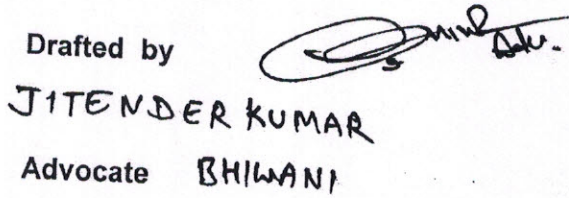 Drafted by
JITENDER KUMAR
Advocate BHIWANI